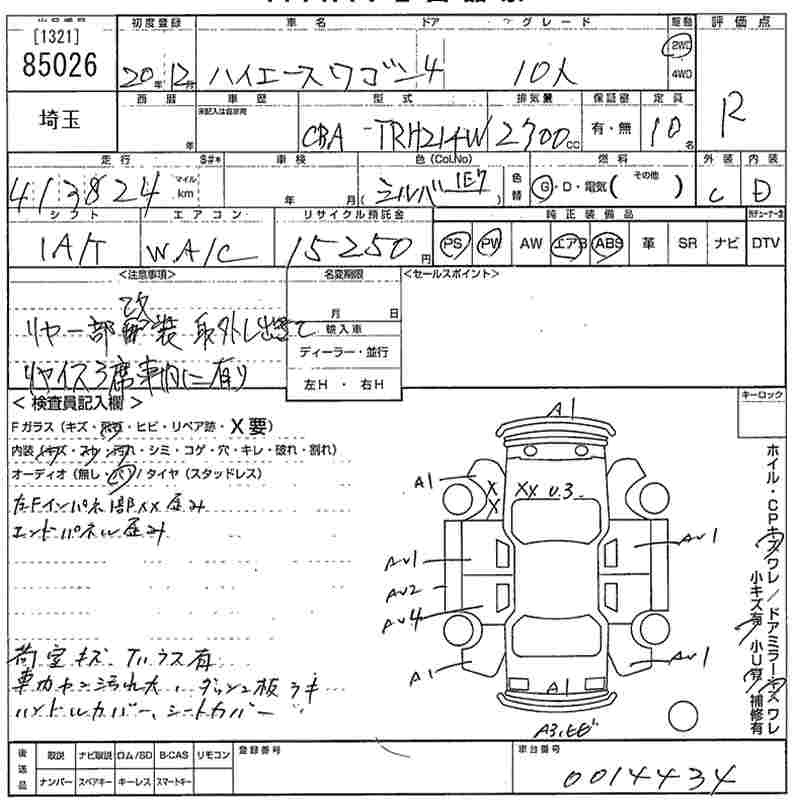 出品番号 初度登録 車名 ドア グレード 駆動 評価点
[1321]
85026 20年12月 ハイエースワゴン 4 10人 2WD
4WD
R
埼玉 西暦 車歴 型式 排気量 保証書 定員
未記入は自家用
年 CBA-TRH214W 2700cc 有・無 10名
走行 $#* 車検 色(Col.No) 燃料 外装 内装
413824 マイル km 年 月 シルバー 1E7 色替 G・D・電気( その他 ) C D
シフト エアコン リサイクル預託金 純正装備品
IA/T W.A/C 15250円 PS PW AW エアB ABS 革 SR ナビ DTV
<注意事項> 名変期限 <セールスポイント>
月 日
リヤ一部改装 取外し出きて
輸入車
ディーラー・並行
リヤイス3席車内に有り
左H・右H
<検査員記入欄> キーロック
Fガラス(キズ・飛石・ヒビ・リペア跡・X要)
内装(キズ・スレ・汚れ・シミ・コゲ・穴・キレ・破れ・割れ)
オーディオ(無し・パ)/タイヤ(スタッドレス)
左Fインパネ部XX歪み
エンドパネル歪み
荷室キズ、Tルラス有
ハンドルカバー、シートカバー
A1
A1 X X XX U.3
AU1 AU1
AU2
AU4
A1 A1 AU1
A3.ヒビ
ホイル・CPキズワレ/ドアミラーキズワレ
小キズ有 小U有 補修有
後送品 取説 ナビ取説 ロム/SD B-CAS リモコン 登録番号 車台番号
ナンバー スペアキー キーレス スマートキー
0014434